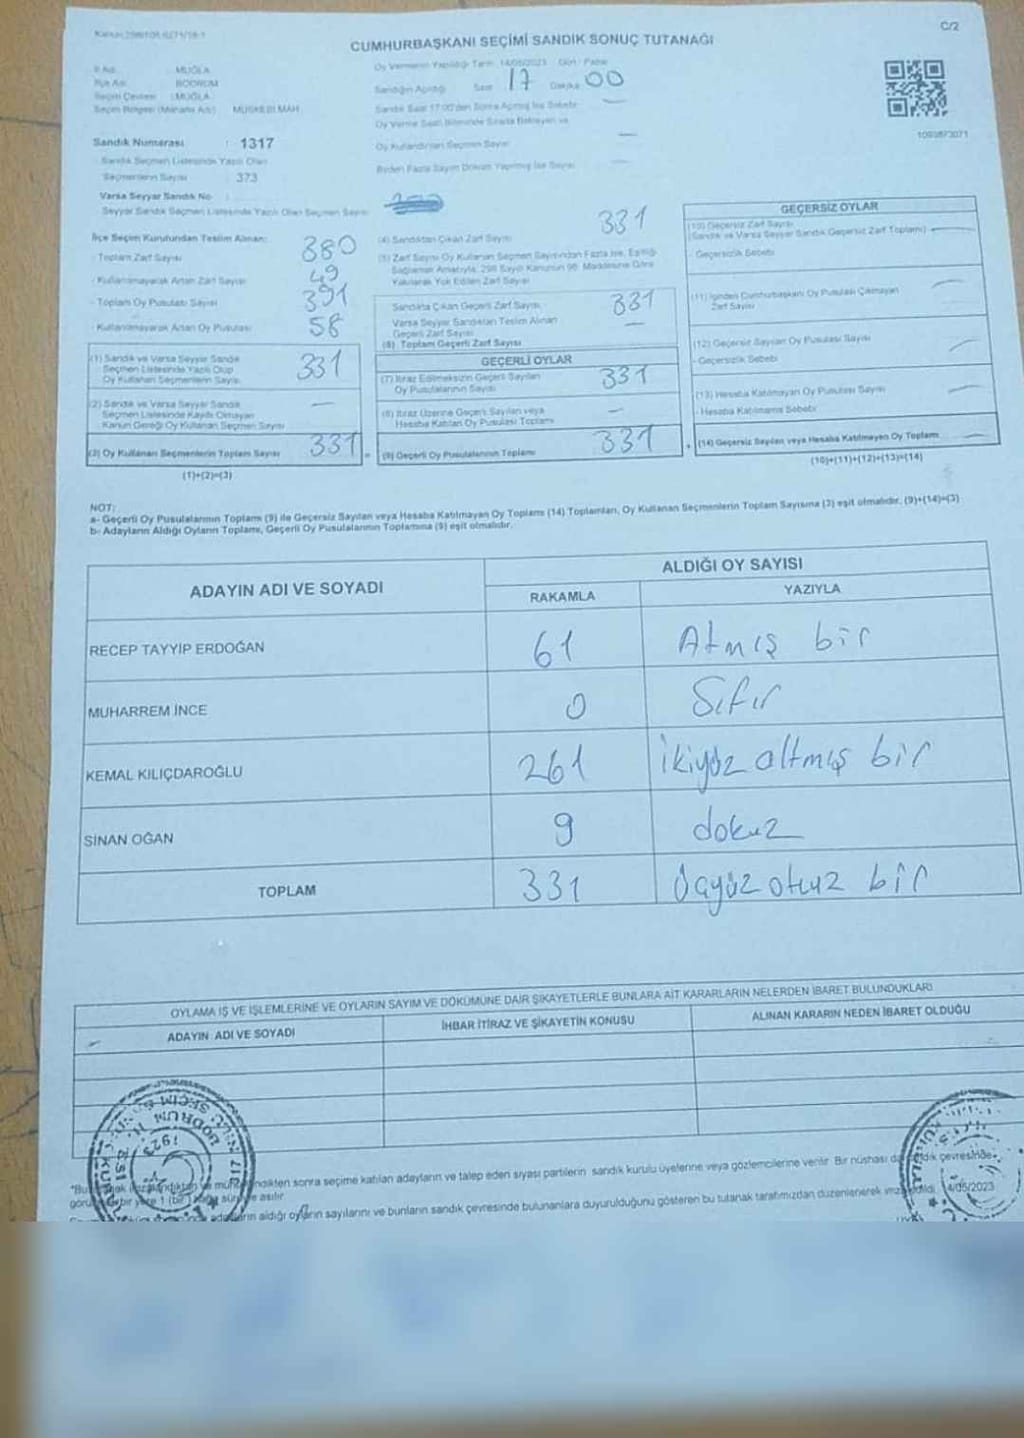 C/2
CUMHURBAŞKANI SEÇİMİ SANDIK SONUÇ TUTANAĞI
İl Adı : MUĞLA
İlçe Adı : BODRUM
Seçim Çevresi : MUĞLA
Seçim Bölgesi (Mahalle Adı) : MÜSKEBİ MAH.
Sandık Numarası : 1317
Sandık Seçmen Listesinde Yazılı Olan
Seçmenlerin Sayısı : 373
Varsa Seyyar Sandık No :
Seyyar Sandık Seçmen Listesinde Yazılı Olan Seçmen Sayısı
Oy Vermenin Yapıldığı Tarih : 14/05/2023 Gün : Pazar
Sandığın Açıldığı Saat 17 Dakika 00
Sandık Saat 17:00'den Sonra Açılmış İse Sebebi
Oy Verme Saati Bitiminde Sırada Bekleyen ve
Oy Kullandırılan Seçmen Sayısı
Birden Fazla Sayım Döküm Yapılmış İse Sayısı
1099873071
İlçe Seçim Kurulundan Teslim Alınan:
- Toplam Zarf Sayısı 380
- Kullanılmayarak Artan Zarf Sayısı 49
- Toplam Oy Pusulası Sayısı 391
- Kullanılmayarak Artan Oy Pusulası 58
(1) Sandık ve Varsa Seyyar Sandık
Seçmen Listesinde Yazılı Olup
Oy Kullanan Seçmenlerin Sayısı 331
(2) Sandık ve Varsa Seyyar Sandık
Seçmen Listesinde Kayıtlı Olmayan
Kanun Gereği Oy Kullanan Seçmen Sayısı —
(3) Oy Kullanan Seçmenlerin Toplam Sayısı 331
(1)+(2)=(3)
(4) Sandıktan Çıkan Zarf Sayısı 331
(5) Zarf Sayısı Oy Kullanan Seçmen Sayısından Fazla İse, Eşitliği
Sağlamak Amacıyla, 298 Sayılı Kanunun 98. Maddesine Göre
Yakılarak Yok Edilen Zarf Sayısı
Sandıkta Çıkan Geçerli Zarf Sayısı 331
Varsa Seyyar Sandıktan Teslim Alınan
Geçerli Zarf Sayısı —
(6) Toplam Geçerli Zarf Sayısı
GEÇERLİ OYLAR
(7) İtiraz Edilmeksizin Geçerli Sayılan
Oy Pusulalarının Sayısı 331
(8) İtiraz Üzerine Geçerli Sayılan veya
Hesaba Katılan Oy Pusulası Toplamı —
(9) Geçerli Oy Pusulalarının Toplamı 331
GEÇERSİZ OYLAR
(10) Geçersiz Zarf Sayısı
(Sandık ve Varsa Seyyar Sandık Geçersiz Zarf Toplamı) —
- Geçersizlik Sebebi
(11) İçinden Cumhurbaşkanı Oy Pusulası Çıkmayan
Zarf Sayısı —
(12) Geçersiz Sayılan Oy Pusulası Sayısı —
- Geçersizlik Sebebi
(13) Hesaba Katılmayan Oy Pusulası Sayısı —
- Hesaba Katılmama Sebebi
(14) Geçersiz Sayılan veya Hesaba Katılmayan Oy Toplamı —
(10)+(11)+(12)+(13)=(14)
NOT:
a- Geçerli Oy Pusulalarının Toplamı (9) ile Geçersiz Sayılan veya Hesaba Katılmayan Oy Toplamı (14) Toplamları, Oy Kullanan Seçmenlerin Toplam Sayısına (3) eşit olmalıdır. (9)+(14)=(3)
b- Adayların Aldığı Oyların Toplamı, Geçerli Oy Pusulalarının Toplamına (9) eşit olmalıdır.
ADAYIN ADI VE SOYADI
ALDIĞI OY SAYISI
RAKAMLA YAZIYLA
RECEP TAYYİP ERDOĞAN 61 Atmış bir
MUHARREM İNCE 0 Sıfır
KEMAL KILIÇDAROĞLU 261 ikiyüz altmış bir
SİNAN OĞAN 9 dokuz
TOPLAM 331 üçyüz otuz bir
OYLAMA İŞ VE İŞLEMLERİNE VE OYLARIN SAYIM VE DÖKÜMÜNE DAİR ŞİKAYETLERLE BUNLARA AİT KARARLARIN NELERDEN İBARET BULUNDUKLARI
ADAYIN ADI VE SOYADI İHBAR İTİRAZ VE ŞİKAYETİN KONUSU ALINAN KARARIN NEDEN İBARET OLDUĞU
sonra seçime katılan adayların ve talep eden siyasi partilerin sandık kurulu üyelerine veya gözlemcilerine verilir. Bir nüshası da çevresinde
bir yere 1 (bir) asılır.
aldığı oyların sayılarını ve bunların sandık çevresinde bulunanlara duyurulduğunu gösteren bu tutanak tarafımızdan düzenlenerek 4/05/2023
BODRUM
1923
1317